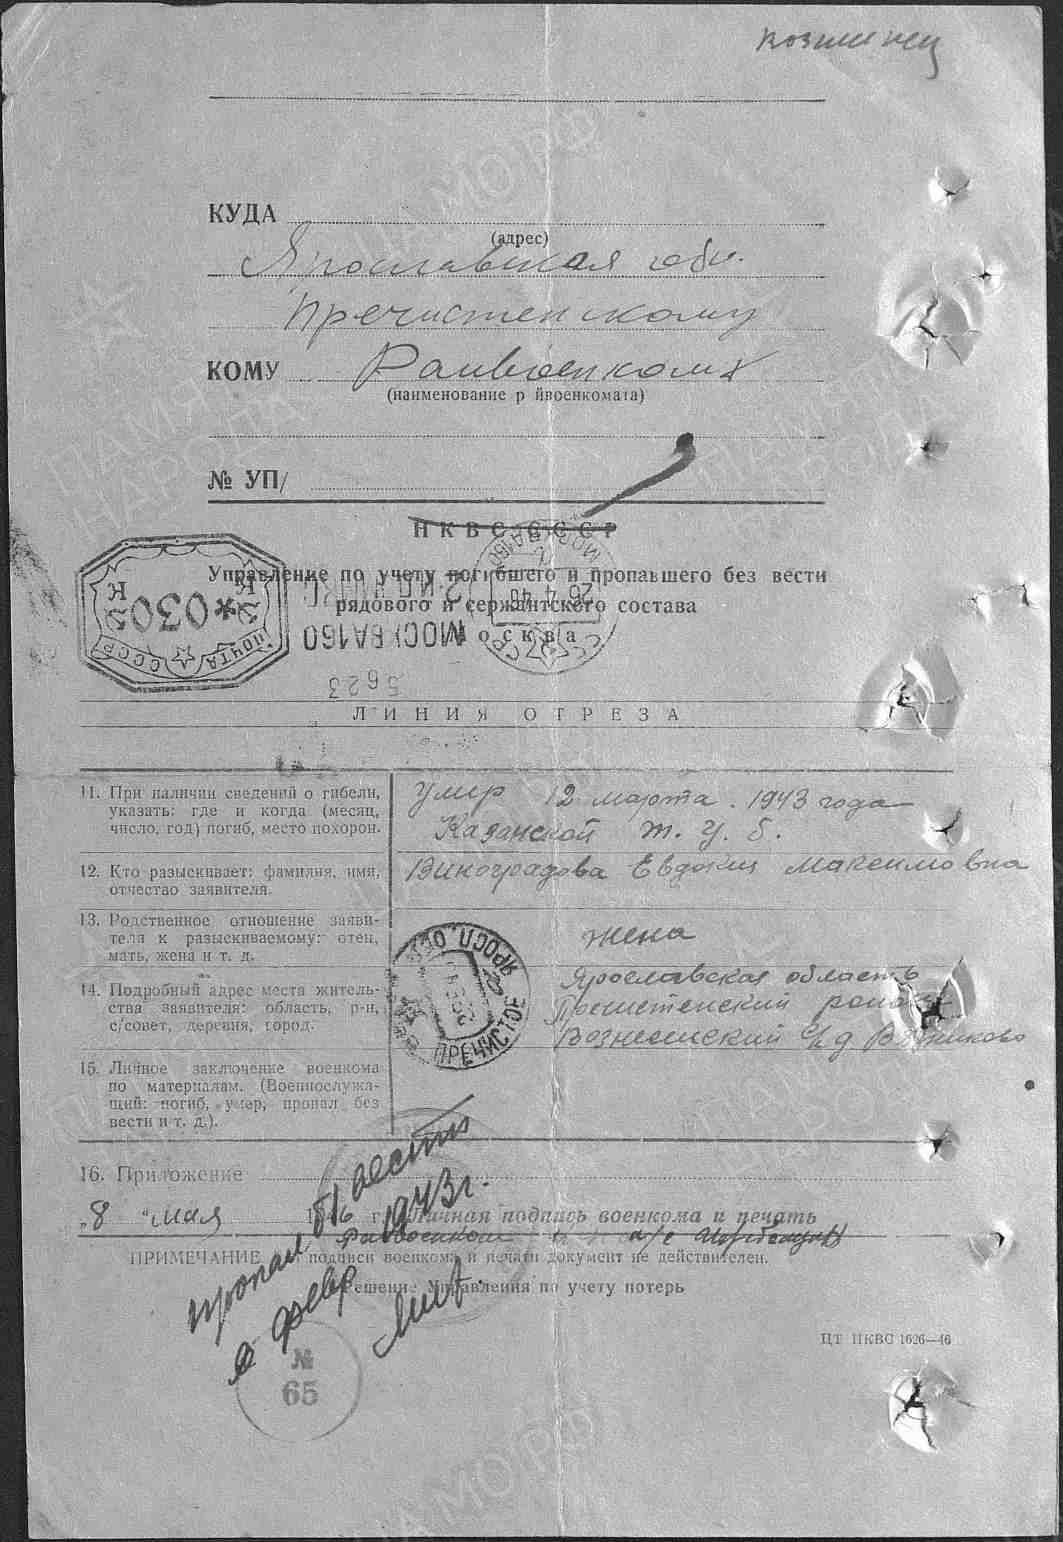 КУДА
(адрес)
Ярославская обл.
Пречистенскому
КОМУ Райвоенкому
(наименование р йвоенкомата)
№ УП/
НКВС СССР
Управление по учету погибшего и пропавшего без вести
рядового и сержантского состава
Москва
ПОЧТА СССР
К *030 К
МОСКВА 160
5623
ЛИНИЯ ОТРЕЗА
11. При наличии сведений о гибели,
указать: где и когда (месяц,
число, год) погиб, место похорон.
Умер 12 марта. 1943 года
Казанской Т.У.б.
12. Кто разыскивает: фамилия, имя,
отчество заявителя.
Виноградова Евдокия Максимовна
13. Родственное отношение заяви-
теля к разыскиваемому: отец,
мать, жена и т. д.
жена
14. Подробный адрес места житель-
ства заявителя: область, р-н,
с/совет, деревня, город.
Ярославская область
Вознесенский с/с д
ЯРОСЛ. ОБЛ.
ПРЕЧИСТОЕ
15. Личное заключение военкома
по материалам. (Военнослужа-
щий: погиб, умер, пропал без
вести и т. д.).
16. Приложение
„8 " мая 6 г. Личная подпись военкома и печать
Райвоенком
ПРИМЕЧАНИЕ подписи военкома и печати документ не действителен.
Решение Управления по учету потерь
пропал б/вести
в февр 1943г.
ЦТ НКВС 1626—46
№
65
ПАМЯТЬ
НАРОДА